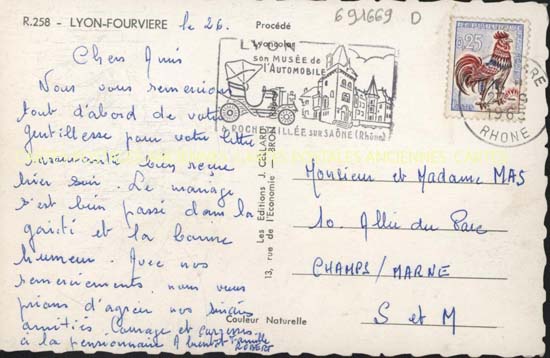 R.258 - LYON-FOURVIERE le 26.
Procédé
Lyoncolor
691669 D
Chers Amis
Nous vous remercions
tout d'abord de votre
gentillesse pour votre lettre
bien reçue
hier soir. Le mariage
s'est bien passé dans la
gaieté et la bonne
humeur. Avec nos
remerciements nous vous
prions d'agréer nos
amitiés Courage et
à la pensionnaire A bientôt Famille
ROBERT
LYON
son MUSÉE de
l'AUTOMOBILE
LA ROCHETAILLÉE SUR SAÔNE (Rhône)
0,25
RHONE
Les Editions J. CELLARD
13, rue de l'Economie BRON
Couleur Naturelle
Monsieur et Madame MAS
10. Allée du Parc
CHAMPS/MARNE
S et M